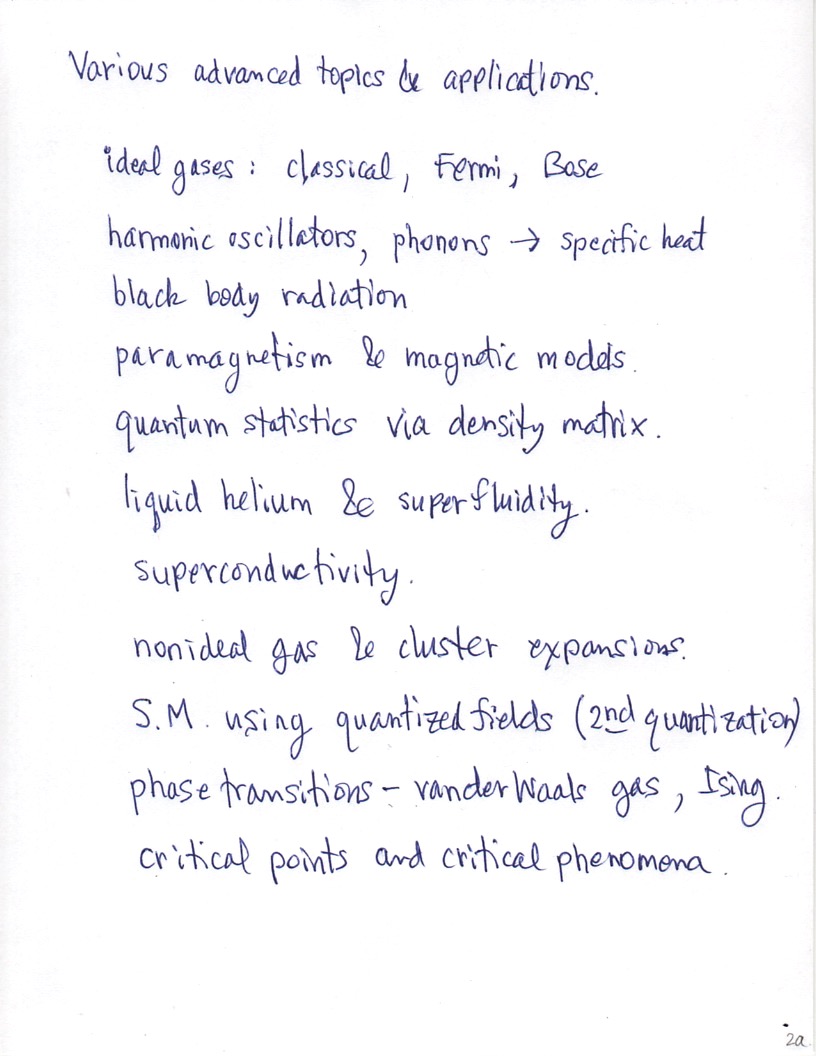 Various advanced topics & applications.
ideal gases: classical, Fermi, Bose
harmonic oscillators, phonons → specific heat
black body radiation
paramagnetism & magnetic models.
quantum statistics via density matrix.
liquid helium & superfluidity.
superconductivity.
nonideal gas & cluster expansions.
S.M. using quantized fields (2nd quantization)
phase transitions - vanderWaals gas, Ising.
critical points and critical phenomena.
2a